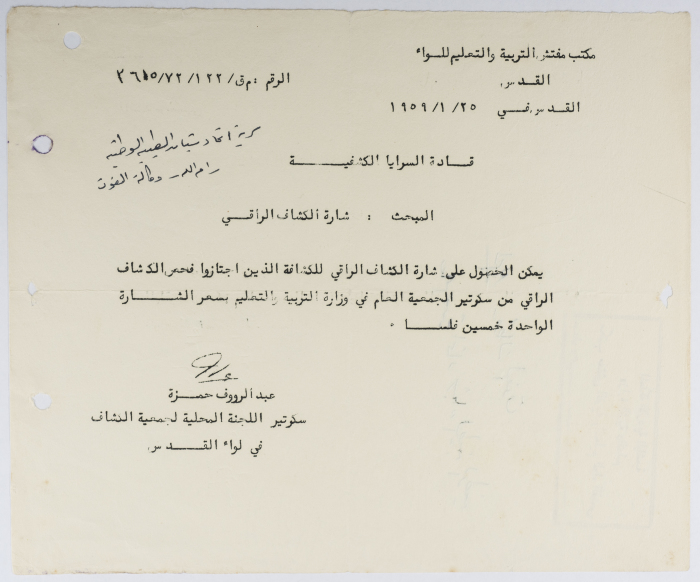 مكتب مفتش التربية والتعليم للواء
القدس
القدس في ٢٥/ ١ /١٩٥٩
الرقم : م ق/ ١٢٢/ ٧٢/ ٣٦١٥
سرية اتحاد شبان الوطنية
رام الله وكالة الغوث
قادة السرايا الكشفية
المبحث : شارة الكشاف الراقي
يمكن الحصول على شارة الكشاف الراقي للكشافة الذين اجتازوا فحص الكشاف
الراقي من سكوتير الجمعية العام في وزارة التربية والتعليم بسعر الشارة
الواحدة خمسين فلسا ٠
عبد الرووف حمزة
سكوتير اللجنة المحلية لجمعية الكشاف
في لواء القدس